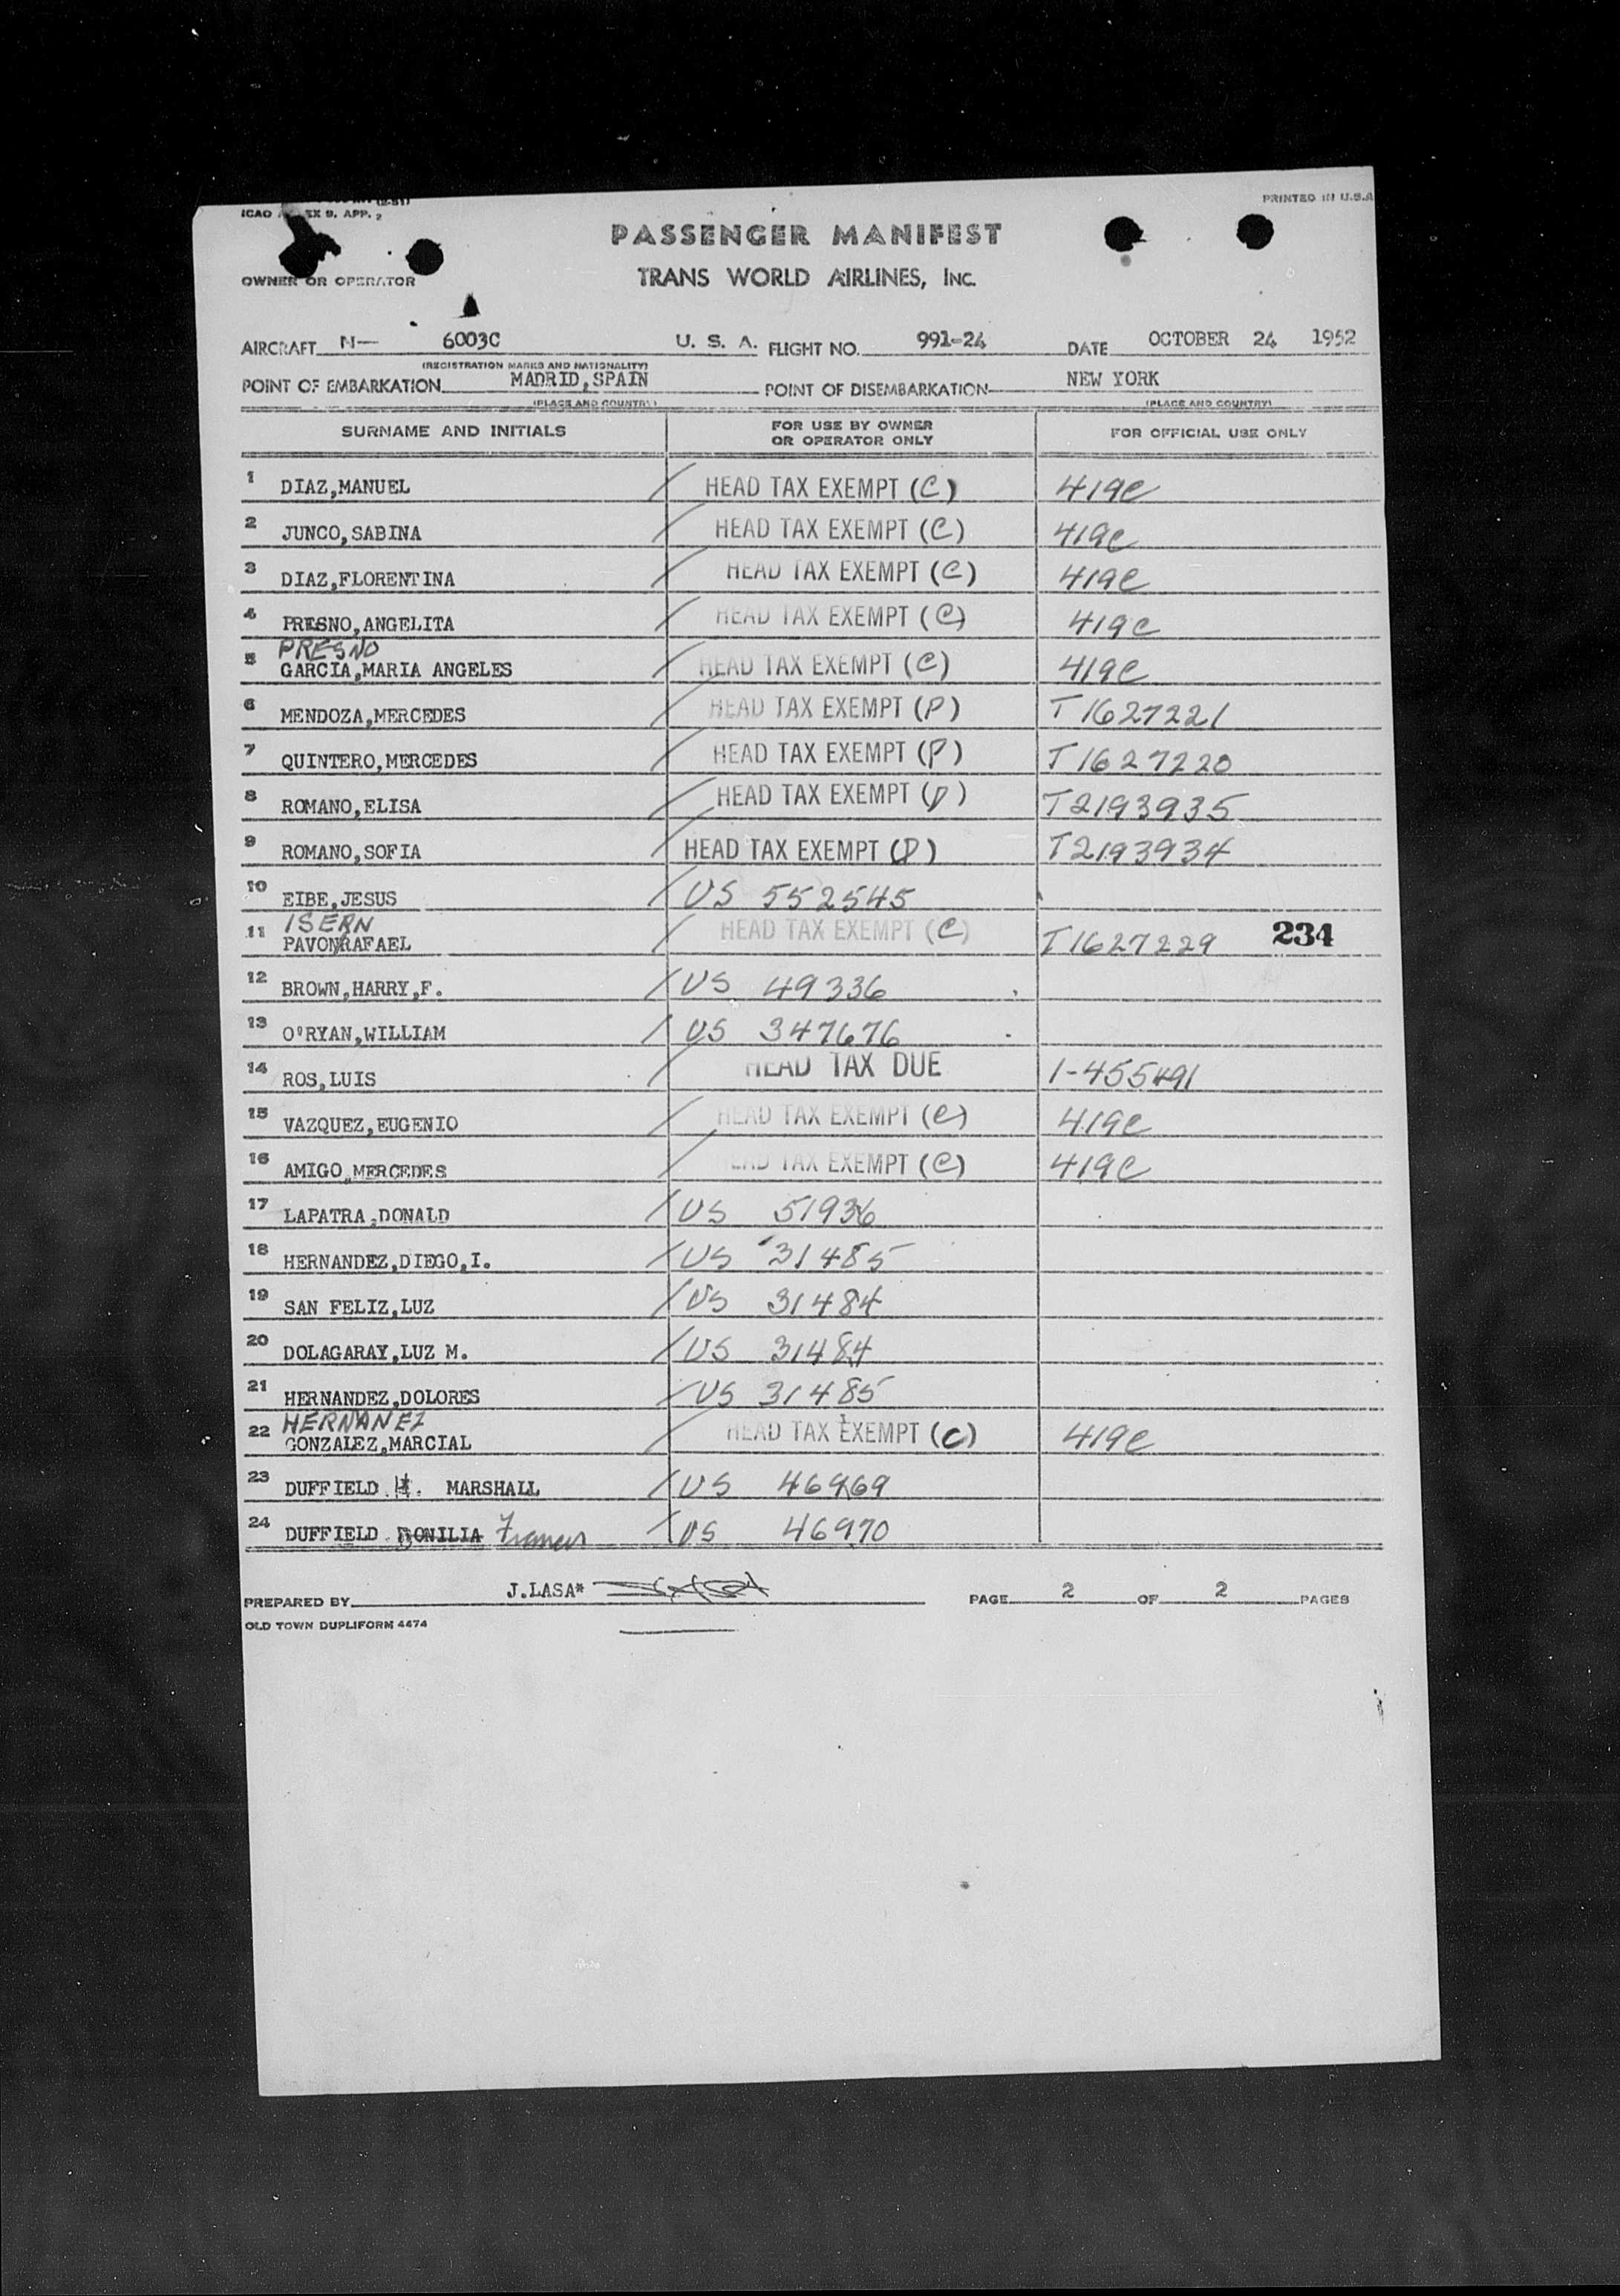 PRINTED IN U.S.A
ICAO EX 9, APP. 2
PASSENGER MANIFEST
OWNER OR OPERATOR TRANS WORLD AIRLINES, INC.
AIRCRAFT N— 6003C U. S. A. FLIGHT NO. 991-24 DATE OCTOBER 24 1952
(REGISTRATION MARKS AND NATIONALITY)
POINT OF EMBARKATION MADRID, SPAIN POINT OF DISEMBARKATION NEW YORK
(PLACE AND COUNTRY) (PLACE AND COUNTRY)
SURNAME AND INITIALS FOR USE BY OWNER OR OPERATOR ONLY FOR OFFICIAL USE ONLY
1 DIAZ,MANUEL / HEAD TAX EXEMPT (C) 419C
2 JUNCO,SABINA / HEAD TAX EXEMPT (C) 419C
3 DIAZ,FLORENTINA / HEAD TAX EXEMPT (C) 419C
4 PRESNO,ANGELITA / HEAD TAX EXEMPT (C) 419C
PRESNO
5 GARCIA,MARIA ANGELES / HEAD TAX EXEMPT (C) 419C
6 MENDOZA,MERCEDES / HEAD TAX EXEMPT (P) T1627221
7 QUINTERO,MERCEDES / HEAD TAX EXEMPT (P) T1627220
8 ROMANO,ELISA / HEAD TAX EXEMPT (P) T2193935
9 ROMANO,SOFIA / HEAD TAX EXEMPT (P) T2193934
10 EIBE,JESUS / US 552545
ISERN
11 PAVON,RAFAEL / HEAD TAX EXEMPT (C) T1627229 234
12 BROWN,HARRY,F. / US 49336
13 O'RYAN,WILLIAM / US 347676
14 ROS,LUIS / HEAD TAX DUE 1-455491
15 VAZQUEZ,EUGENIO / HEAD TAX EXEMPT (C) 419C
16 AMIGO,MERCEDES / HEAD TAX EXEMPT (C) 419C
17 LAPATRA,DONALD / US 51936
18 HERNANDEZ,DIEGO,I. / US 31485
19 SAN FELIZ,LUZ / US 31484
20 DOLAGARAY,LUZ M. / US 31484
21 HERNANDEZ,DOLORES / US 31485
HERNANEZ
22 GONZALEZ,MARCIAL / HEAD TAX EXEMPT (C) 419C
23 DUFFIELD H. MARSHALL / US 46969
24 DUFFIELD Frances / US 46970
PREPARED BY J.LASA* PAGE 2 OF 2 PAGES
OLD TOWN DUPLIFORM 4474